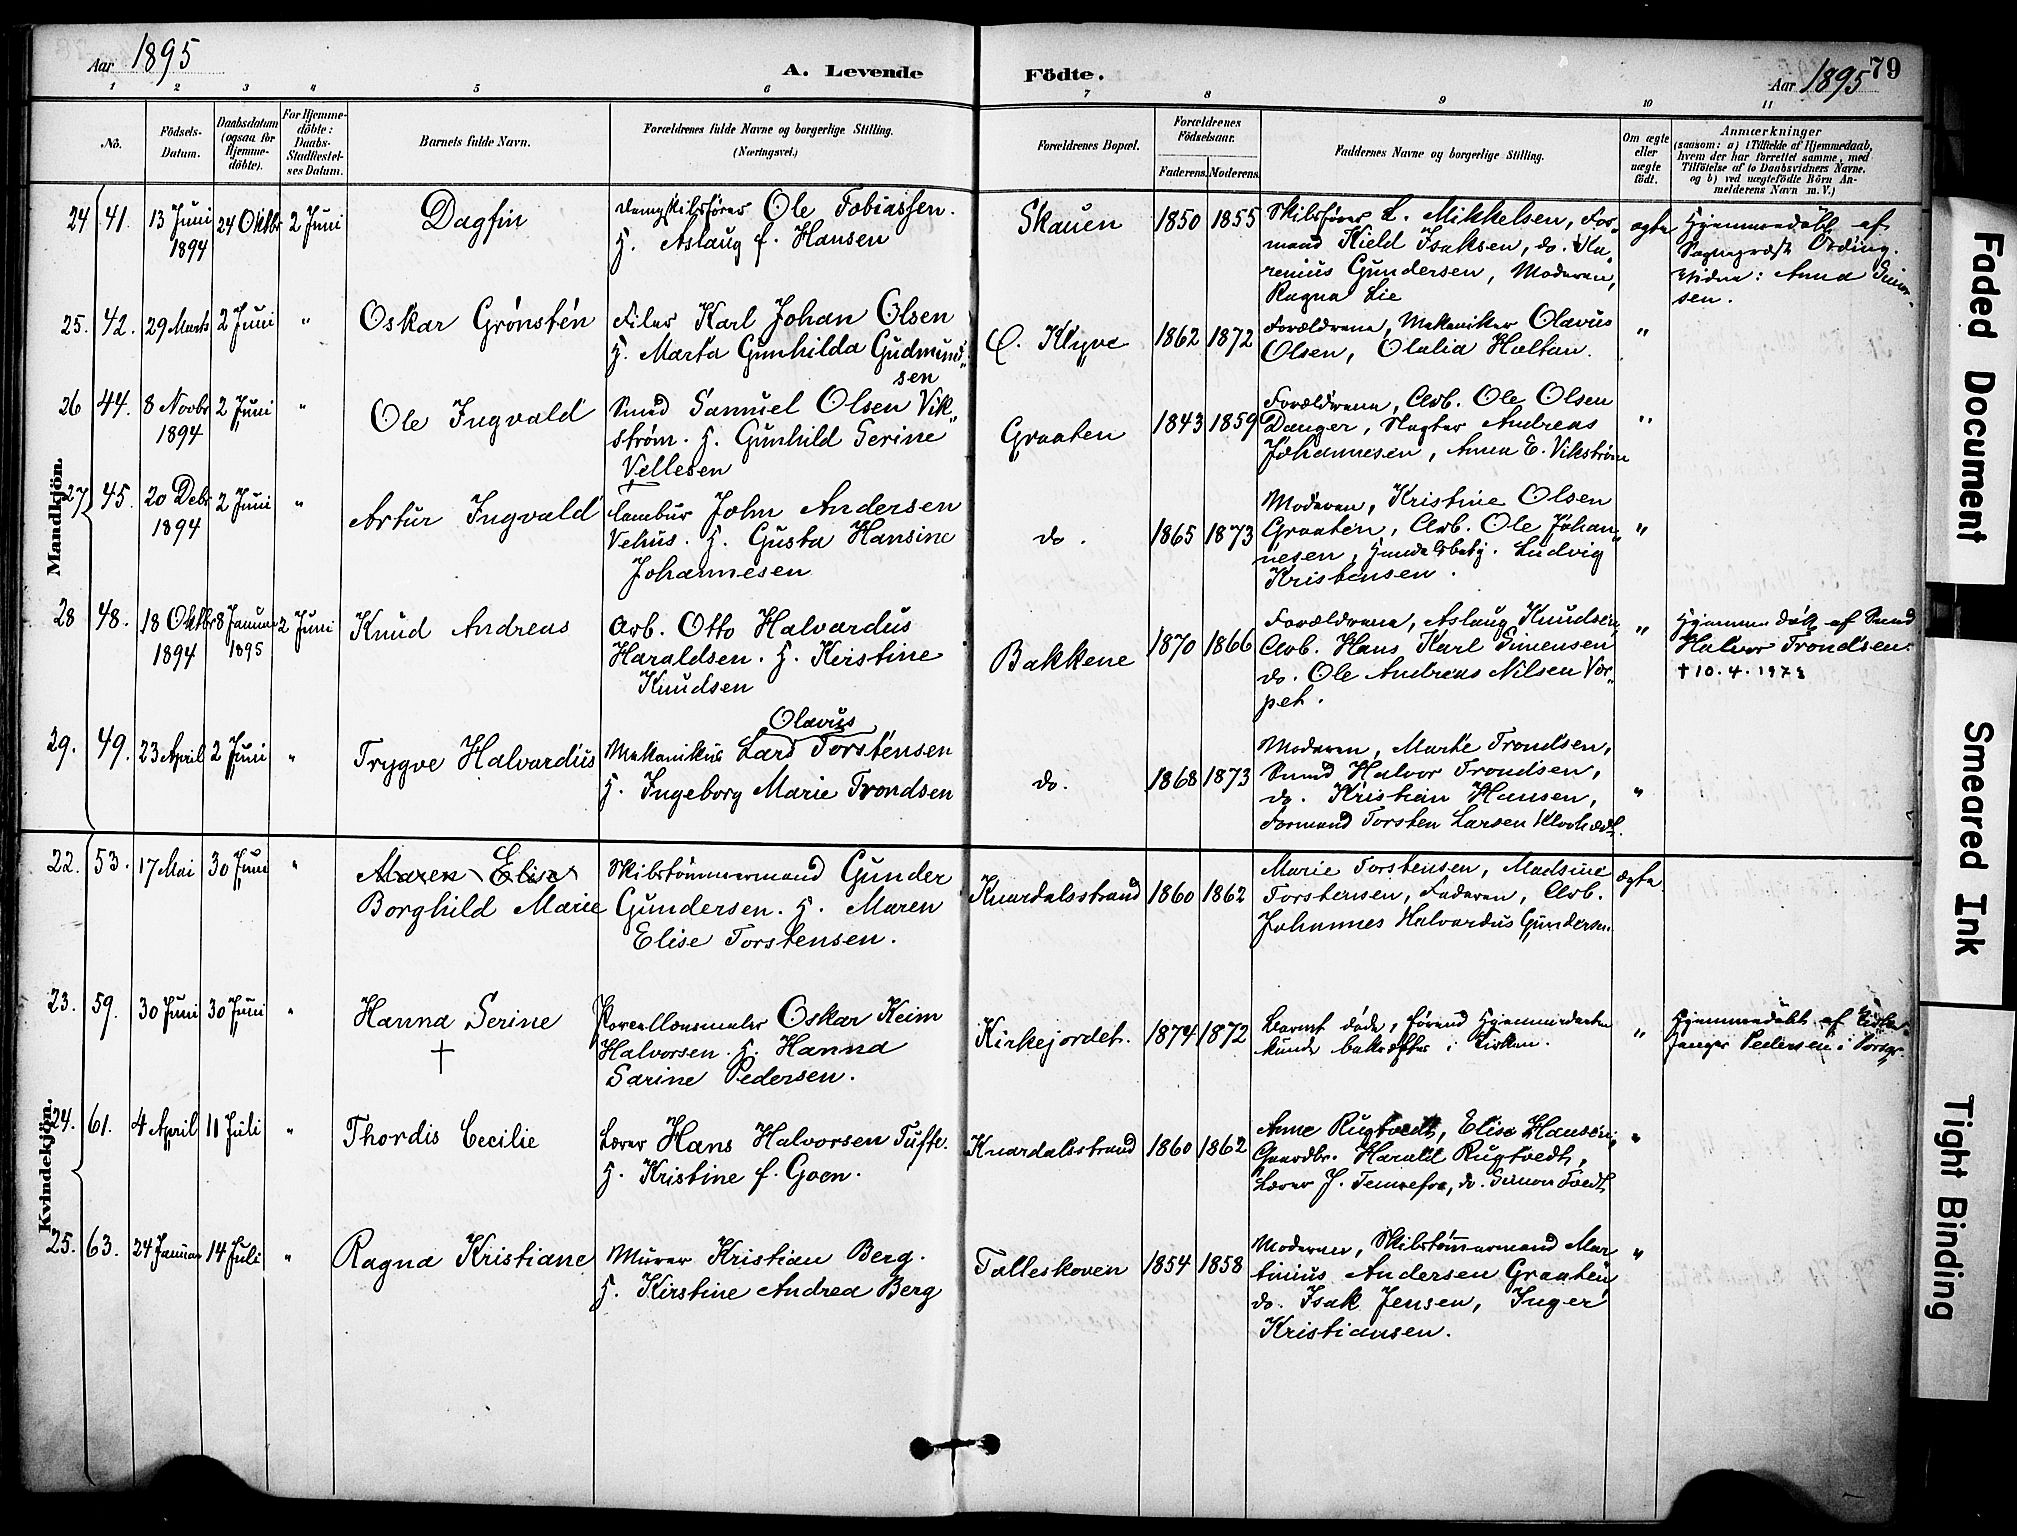 Aar 1895
A. Levende Födte.
Aar 1895
79
1 2 3 4 5 6 7 8 9 10 11
No.
Födsels-Datum.
Daabsdatum (ogsaa for Hjemme-döbte).
For Hjemme-döbte: Daabs-Stadfæstel-ses Datum.
Barnets fulde Navn.
Forældrenes fulde Navne og borgerlige Stilling.
(Næringsvei.)
Forældrenes Bopæl.
Forældrenes Födselsaar.
Faderens. Moderens.
Faddernes Navne og borgerlige Stilling.
Om ægte eller uægte födt.
Anmærkninger
(saasom: a) i Tilfælde af Hjemmedaab,
hvem der har forrettet samme, med
Tilföielse af to Daabsvidners Navne,
og b) ved uægtefödte Börn An-
melderens Navn m. V.)
Mandkjön.
24 41. 13 Juni 1894 24 Oktbr 2 Juni
Dagfin
Dampskibsfører Ole Tobiassen.
H. Aslaug f. Hansen
Skauen 1850 1855
Skibsfører L. Mikkelsen, For-
mand Kield Isaksen, do. Ka-
renius Gundersen, Moderen,
Ragna Lie
ægte
Hjemmedøbt af
Sogneprest Ording.
Vidne: Anna Simon-
sen.
25. 42. 29 Marts 2 Juni "
Oskar Grønsten
Filer Karl Johan Olsen
H. Marta Gunhilda Gudmund-
sen
Ø. Klyve 1862 1872
Forældrene, Mekaniker Olavus
Olsen, Olalia Holtan.
"
26 44. 8 Novbr 1894 2 Juni "
Ole Ingvald
Smed Samuel Olsen Vik-
strøm. H. Gunhild Serine
Vellesen
Graaten 1843 1859
Forældrene, Arb. Ole Olsen
Danger, Slagter Andreas
Johannesen, Anna E. Vikstrøm
"
27 45. 20 Debr 1894 2 Juni "
Artur Ingvald
John Andersen
Vehus. H. Gusta Hansine
Johannesen
do. 1865 1873
Moderen, Kristine Olsen
Graaten, Arb. Ole Johan-
nesen, Handelsbetj. Ludvig
Kristensen.
"
28 48. 18 Oktbr 1894 8 Januar 1895 2 Juni
Knud Andreas
Arb. Otto Halvardus
Haraldsen. H. Kirstine
Knudsen
Bakkene 1870 1866
Forældrene, Aslaug Knudsen,
Arb. Hans Karl Simensen
do. Ole Andreas Nilsen Vor-
pet.
"
Hjemmedøbt af Smed
Halvor Trondsen.
† 10.4.1973
29. 49. 23 April 2 Juni "
Trygve Halvardus
Olavus
Mekanikus Lars Torstensen
H. Ingeborg Marie Trondsen
do. 1868 1873
Moderen, Marte Trondsen,
Smed Halvor Trondsen,
do. Kristian Hansen,
Formand Torsten Larsen
"
Kvindekjön.
22. 53. 17 Mai 30 Juni "
Maren Elise
Borghild Marie
Skibstømmermand Gunder
Gundersen. H. Maren
Elise Torstensen.
Knardalsstrand 1860 1862
Marie Torstensen, Madsine
Torstensen, Faderen, Arb.
Johannes Halvardus Gundersen
ægte
23. 59. 30 Juni 30 Juni "
Hanna Serine
†
Porcellænsmaler Oskar Keim
Halvorsen. H. Hanna
Sarine Pedersen.
Kirkejordet. 1874 1872
Barnet døde, førend Hjemmedaaben
kunde bekræftes i Kirken.
"
Hjemmedøbt af
Pedersen i Porsgr.
24. 61. 4 April 11 Juli "
Thordis Cecilie
Lærer Hans Halvorsen Tufte.
H. Kristine f. Goen.
Knardalsstrand 1860 1862
Anne Rugtvedt, Elise Hansen,
Gaardbr. Harald Rugtvedt,
Lærer J. do. Simon Tvedt
"
25. 63. 24 Januar 14 Juli "
Ragna Kristiane
Murer Kristian Berg.
H. Kirstine Andrea Berg
Tolleskoven 1854 1858
Moderen, Skibstømmermand Mar-
tinius Andersen Graaten
do. Isak Jensen, Inger
Kristiansen.
"
Faded Document
Smeared Ink
Tight Binding